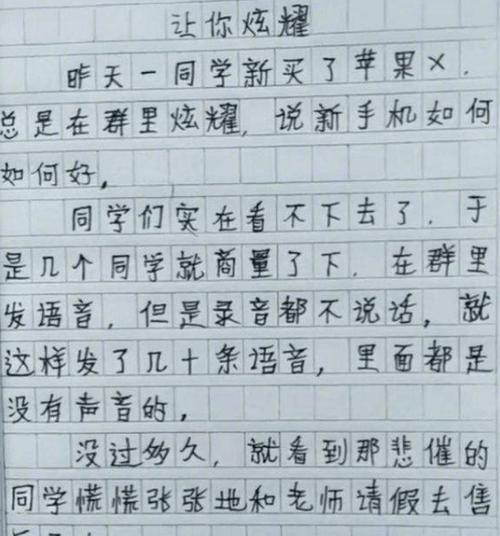 让你炫耀
昨天一同学新买了苹果X.
总是在群里炫耀,说新手机如何
如何好,
同学们实在看不下去了.于
是几个同学就商量了下.在群里
发语音,但是录音都不说话,就
这样发了几十条语音,里面都是
没有声音的,
没过多久,就看到那悲催的
同学慌慌张张地和老师请假去售